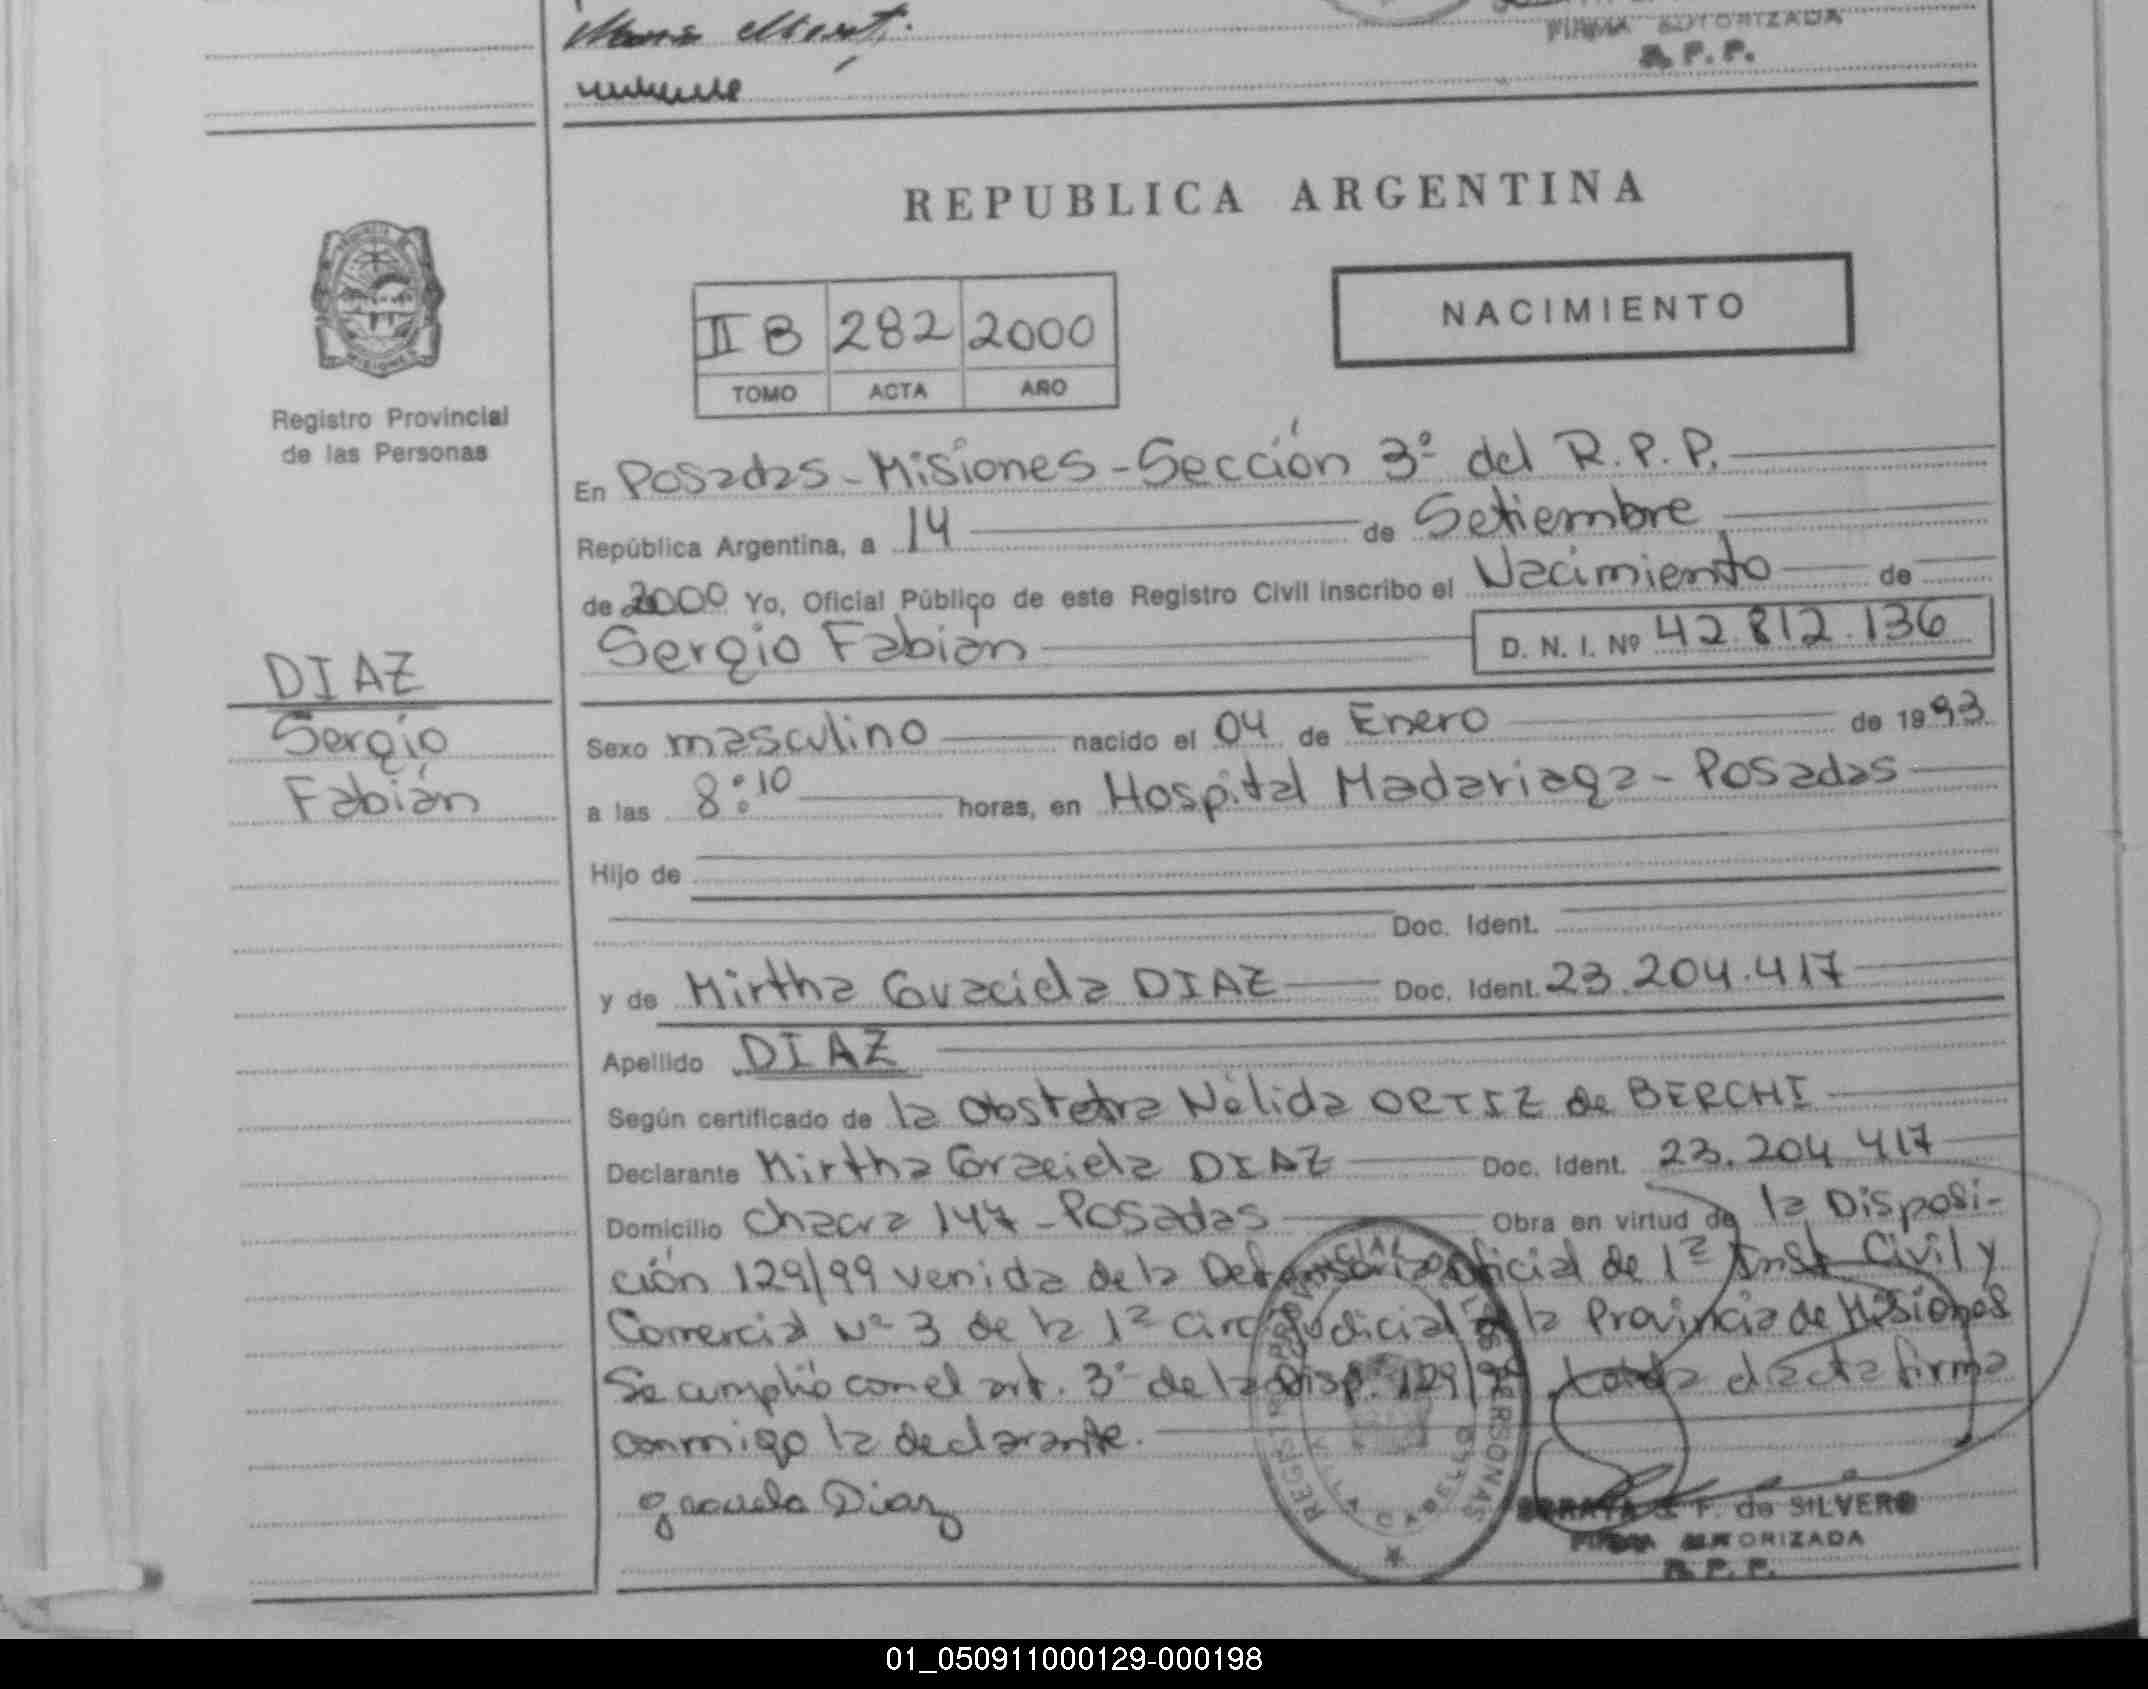 FIRMA AUTORIZADA
R.P.P.
REPUBLICA ARGENTINA
II B 282 2000
TOMO ACTA AÑO
NACIMIENTO
Registro Provincial
de las Personas
En Posadas - Misiones - Sección 3º del R.P.P.
República Argentina, a 14 de Setiembre
de 2000 Yo, Oficial Público de este Registro Civil inscribo el Nacimiento de
Sergio Fabián D. N. I. Nº 42.812.136
DIAZ
Sergio
Fabián
Sexo masculino nacido el 04 de Enero de 1993
a las 8:10 horas, en Hospital Madariaga - Posadas
Hijo de
Doc. Ident.
y de Mirtha Graciela DIAZ Doc. Ident. 23.204.417
Apellido DIAZ
Según certificado de la obstetra Nélida ORTIZ de BERCHI
Declarante Mirtha Graciela DIAZ Doc. Ident. 23.204.417
Domicilio chacra 147 - Posadas Obra en virtud de la Disposi-
ción 129/99 venida de la Defensoria Oficial de 1ª Inst. Civil y
Comercial Nº 3 de la 1ª Circ. Judicial de la Provincia de Misiones
Se cumplió con el art. 3º de la Disp. 129/99. Leída el acta firma
conmigo la declarante.
graciela Diaz
F. de SILVERO
FIRMA AUTORIZADA
R.P.P.
01_050911000129-000198